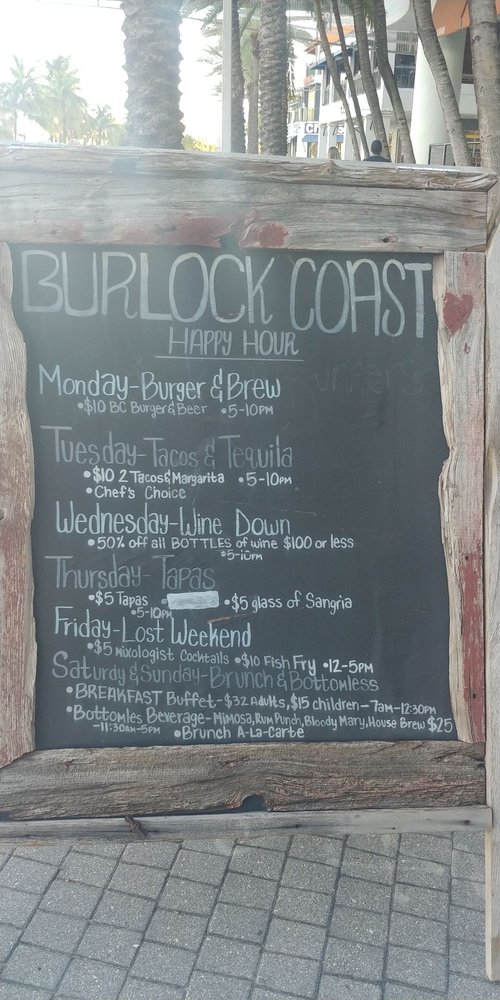 BURLOCK COAST
HAPPY HOUR
Monday-Burger & Brew
•$10 BC Burger & Beer •5-10PM
Tuesday-Tacos & Tequila
•$10 2 Tacos & Margarita •5-10PM
•Chef's Choice
Wednesday-Wine Down
•50% off all BOTTLES of wine $100 or less
•5-10PM
Thursday-Tapas
•$5 Tapas • •$5 glass of Sangria
•5-10PM
Friday-Lost Weekend
•$5 mixologist Cocktails •$10 Fish Fry •12-5PM
Saturdy & Sunday-Brunch & Bottomless
•BREAKFAST Buffet-$32 Adults, $15 children-7am-12:30PM
•Bottomles Beverage-Mimosa, Rum Punch, Bloody Mary, House Brew $25
-11:30AM-5PM •Brunch A-La-Carte